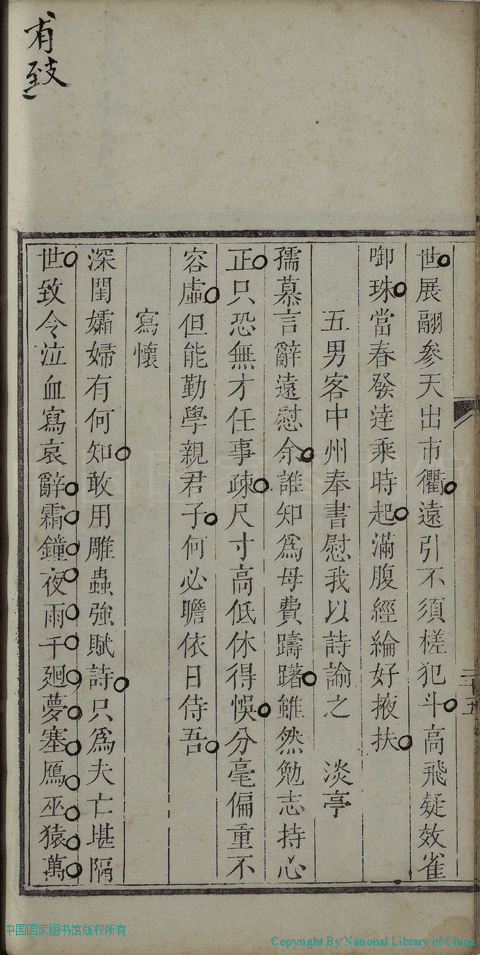 有致
世展翮參天出市衢遠引不須槎犯斗高飛疑效雀
啣珠當春發達乘時起滿腹經綸好掖扶
五男客中州奉書慰我以詩諭之　淡亭
孺慕言辭遠慰余誰知為母費躊躇雖然勉志持心
正只恐無才任事疎尺寸高低休得悞分毫偏重不
容虛但能勤學親君子何必瞻依日侍吾
寫懷
深閨孀婦有何知敢用雕蟲強賦詩只為夫亡堪隔
世致令泣血寫哀辭霜鐘夜雨千廻夢塞鴈巫猿萬
二十五
中国国家图书馆版权所有
Copyright By National Library of China